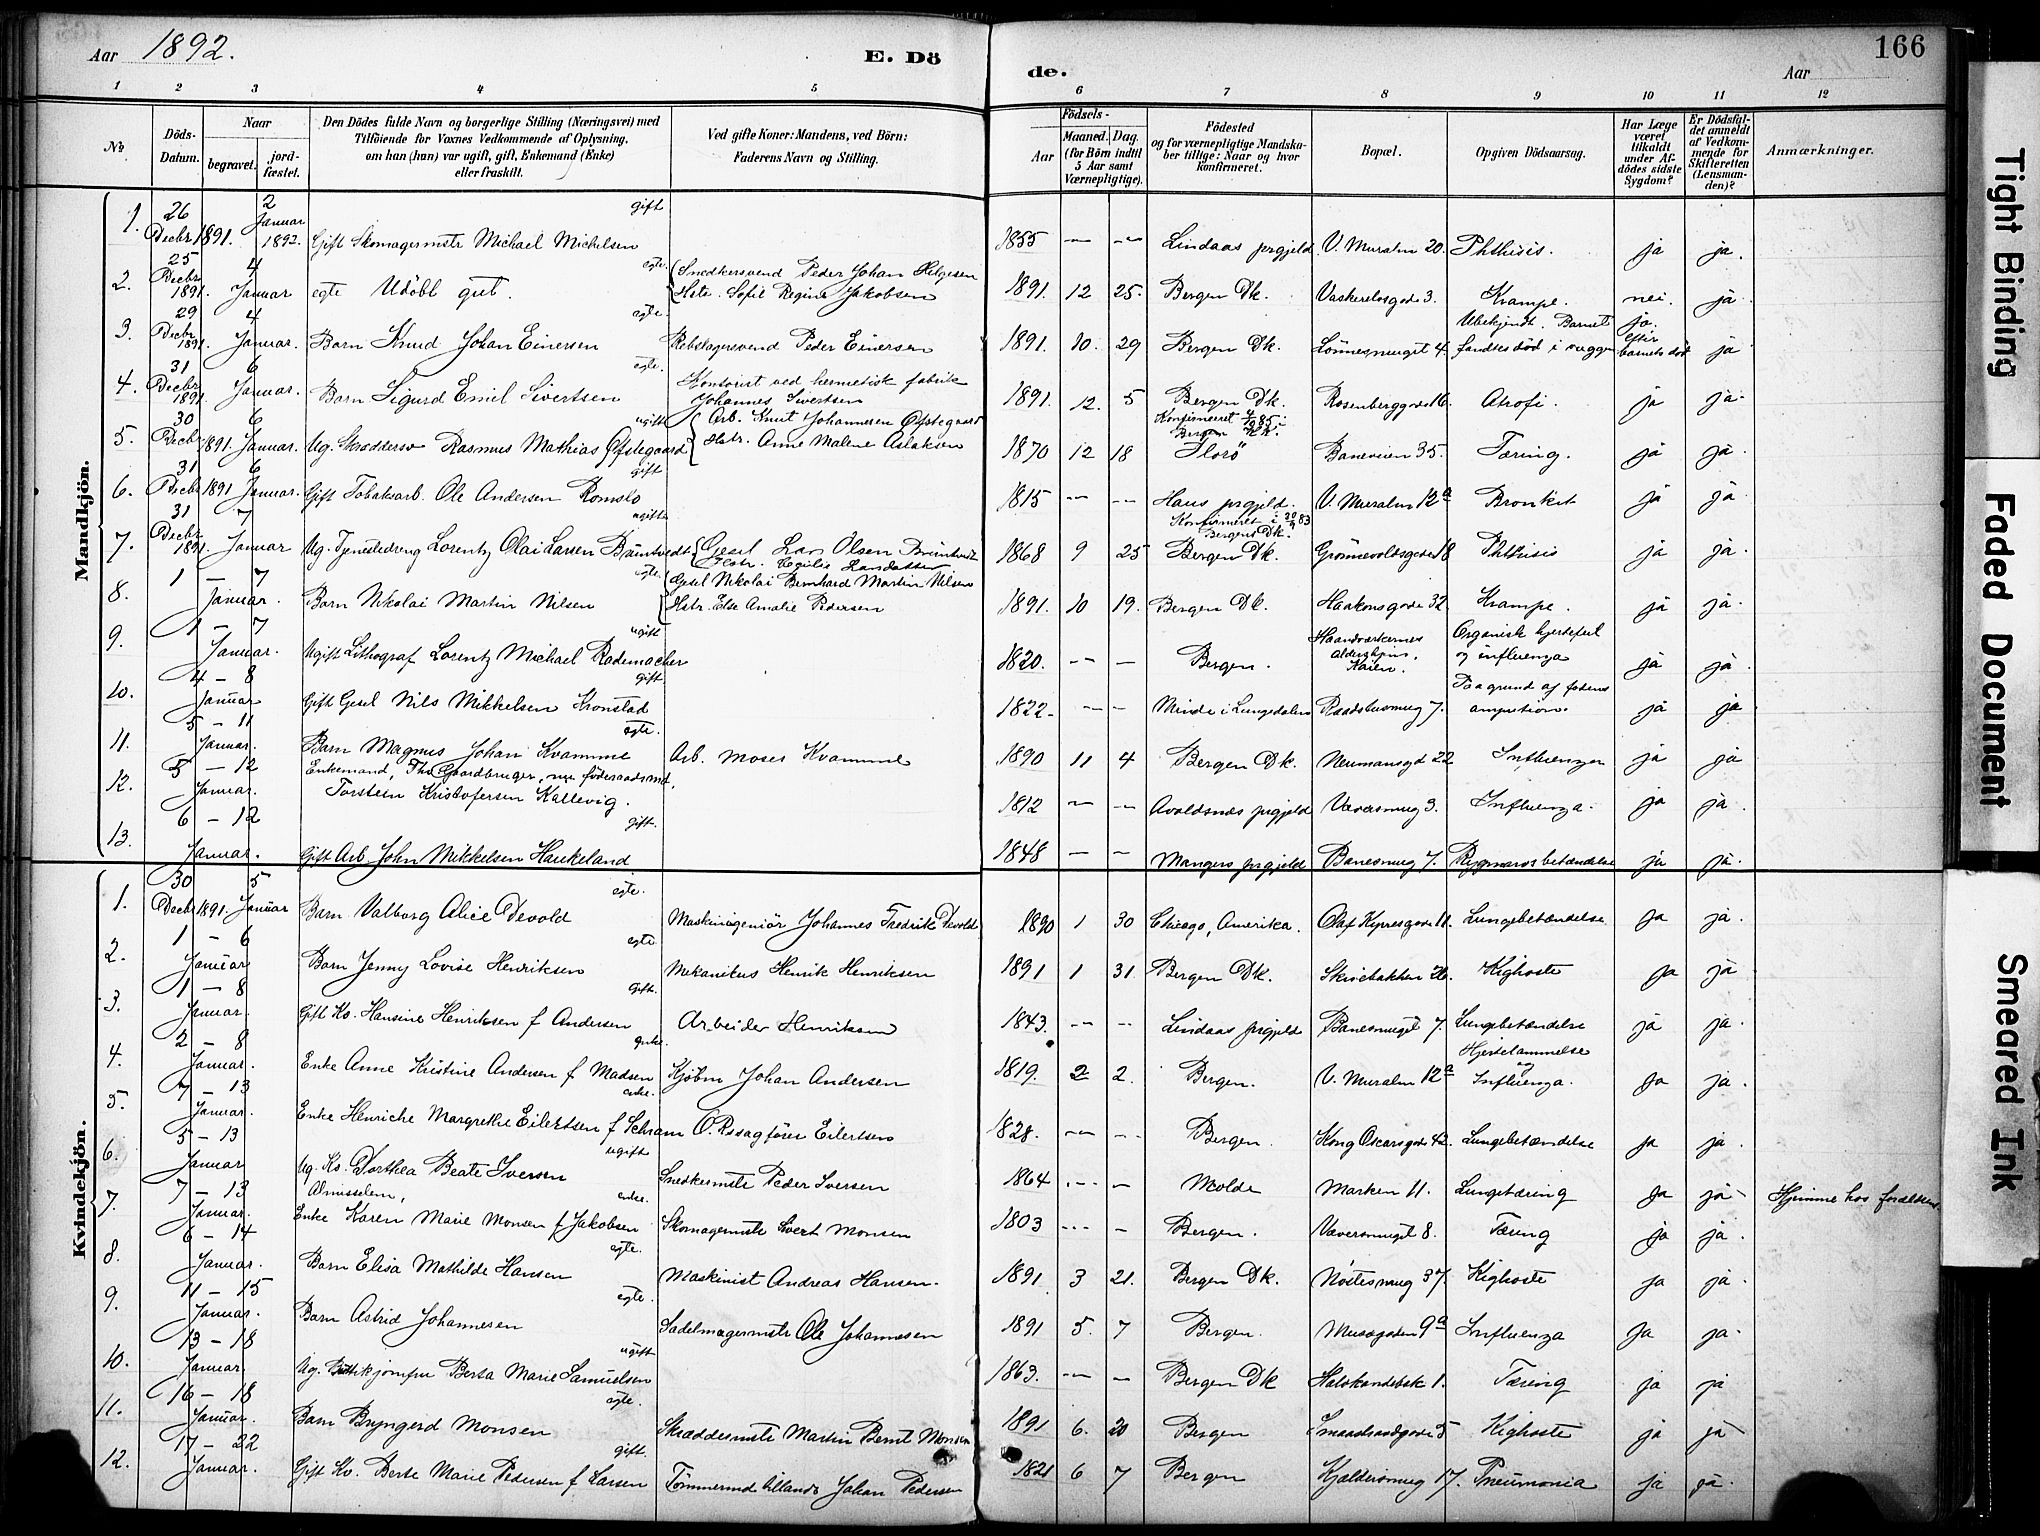 Aar 1892. E. Döde. Aar 166
1 2 3 4 5 6 7 8 9 10 11 12
No.
Döds-Datum.
Naar begravet. jordfæstet.
Den Dödes fulde Navn og borgerlige Stilling (Næringsvei) med Tilföiende for Voxnes Vedkommende af Oplysning, om han (hun) var ugift, gift, Enkemand (Enke) eller fraskilt.
Ved gifte Koner: Mandens, ved Börn: Faderens Navn og Stilling.
Födsels- Aar Maaned. Dag. (for Börn indtil 5 Aar samt Værnepligtige).
Födested og for værnepligtige Mandskaber tillige: Naar og hvor konfirmeret.
Bopæl.
Opgiven Dödsaarsag.
Har Læge været tilkaldt under Afdödes sidste Sygdom?
Er Dödsfaldet anmeldt af Vedkommende for Skifteretten (Lensmanden)?
Anmærkninger.
Mandkjön.
1. 26 Decbr 1891. 2 Januar 1892. Gift Skomagermstr Michael Michelsen gift 1855 -- -- Lindaas prgjeld V. Muralm 20. Phthisis. ja ja.
2. 25 Decbr 1891. 4 Januar egte Udöbt gut. egte. Snedkersvend Peder Johan Helgesen Hstr. Sofie Regine Jakobsen 1891. 12 25. Bergen Dk. 3. Krampe. nei. ja
3. 29 Decbr 1891. 4 Januar. Barn Knud Johan Einersen egte. Rebslagersvend Peder Einersen 1891. 10. 29 Bergen Dk. 4. Ubekjendt. Barnet fandtes död i vuggen ja. efter barnets död ja
4. 31 Decbr 1891. 6 Januar. Barn Sigurd Emil Sivertsen egte. Kontorist ved hermetisk fabrik Johannes Sivertsen 1891. 12. 5 Bergen Dk. Rosenberggade 16. Atrofi. ja ja.
5. 30 Decbr 1891. 6 Januar. Ug. Skræddersv Rasmus Mathias Ofstegaard ugift Arb. Knut Johannesen Ofstegaard Hstr. Anne Malene Aslaksen 1870 12 18 Konfirmeret 1885 i Bergen Florö Baneveien 35. Tæring. ja ja.
6. 31 Decbr 1891 6 Januar. Gift Tobaksarb. Ole Andersen Romslo gift 1815 -- -- Haus prgjeld. V. Muralm 12a Bronkit ja ja.
7. 31 Decbr 1891. 7 Januar Ug. Tjenstedreng Lorentz Olai Larsen Bruntvedt ugift Gesel Lars Olsen Bruntvedt Hstr. 1868 9 25 Konfirmeret i 83 Bergens Dk. Bergen Dk. Grönnevoldsgade 18 Phthisis ja ja.
8. 1 - 7 Januar. Barn Nikolai Martin Nilsen egte. Gesel Nikolai Bernhard Martin Nilsen Hstr. Else Amalie Pedersen 1891. 10 19. Bergen Dk. Haakonsgade 32. Krampe. ja ja.
9. 1 - 7 Januar. Ugift Lithograf Lorentz Michael Rademacher ugift 1820. -- - Bergen. Haandværkernes Alderdhjem, Kaien. Organisk hjertefeil og influenza ja ja.
10. 4 - 8 Januar Gift Gesel Nils Mikkelsen Kronstad gift. 1822. -- - Minde i Lungedalen Raadstusmug 7. Paa grund af fodens amputation. ja ja
11. 5 - 11 Januar. Barn Magnus Johan Kvamme egte. Arb. Moses Kvamme 1890 11 4 Bergen Dk. Neumansgd 22 Influenza ja ja
12. 5 - 12 Januar. Enkemand, Gaardbruger, nu föderaadsmd, Torstein Kristofersen Kallevig. 1812 -- -- Avaldsnes prgjeld Væversmug 3. Influenza. ja ja.
13. 6 - 12 Januar. Gift Arb. John Mikkelsen Haukeland gift. 1848 -- -- Mangers prgjeld Banesmug 7. Rygmarvsbetændelse ja ja.
Kvindekjön.
1. 30 Decbr 1891 5 Januar Barn Valborg Alice Devold egte. Maskiningeniör Johannes Fredrik Devold 1890 1 30 Chicago, Amerika. Olaf Kyrresgade 11. Lungebetændelse ja ja.
2. 1 - 6 Januar Barn Jenny Lovise Henriksen egte. Mekanikus Henrik Henriksen 1891 1 31. Bergen Dk. Skivebakken 26. Kighoste ja ja
3. 1 - 8 Januar Gift Ko. Hansine Henriksen f Andersen gift. Arbeider Henriksen 1843. -- -- Lindaas prgjeld Banesmuget 7. Lungebetændelse ja ja.
4. 2 - 8 Januar. Enke Anne Kristine Andersen f Madsen enke. Kjöbm Johan Andersen 1819. 2 2. Bergen. V. Muralm 12a Hjertelammelse og Influenza. ja ja.
5. 7 - 13 Januar. Enke Henriche Margrethe Eilertsen f Schram enke. O.Rssagförer Eilertsen 1828. -- -- Bergen. Kong Oscarsgade 42. Lungebetændelse ja ja.
6. 5 - 13 Januar Ug. Ko. Dorthea Beate Iversen ugift Snedkermstr Peder Iversen 1864 -- - Molde Marken 11. Lungetæring ja ja Hjemme hos forældrene.
7. 7 - 13 Januar. Almisselem, Enke Karen Marie Monsen f Jakobsen enke. Skomagermstr Sivert Monsen 1803 -- - Bergen. Væversmuget 8. Tæring ja ja.
8. 6 - 14 Januar. Barn Elisa Mathilde Hansen egte. Maskinist Andreas Hansen. 1891. 3 21. Bergen Dk. Nöstesmug 37. Kighoste ja ja.
9. 11 - 15 Januar. Barn Astrid Johannesen egte. Sadelmagermstr Ole Johannesen 1891 5. 7 Bergen. Museigaden 9a Influenza ja ja.
10. 13 - 18 Januar. Ug. Butikjomfru Berta Marie Samuelsen ugift 1863. -- - Bergen Dk Halvkandebak 1. Tæring ja ja
11. 16 - 18 Januar. Barn Bryngerd Monsen egte. Skræddermstr Martin Bernt Monsen 1891 6. 20 Bergen Smaastrandgade 5 Kighoste ja ja
12. 17 - 22 Januar. Gift Ko. Berte Marie Pedersen f Larsen gift. Tömmermd tillands Johan Pedersen 1821 6 7 Bergen Kjeldersmug 17. Pneumonia ja ja.
Tight Binding
Faded Document
Smeared Ink